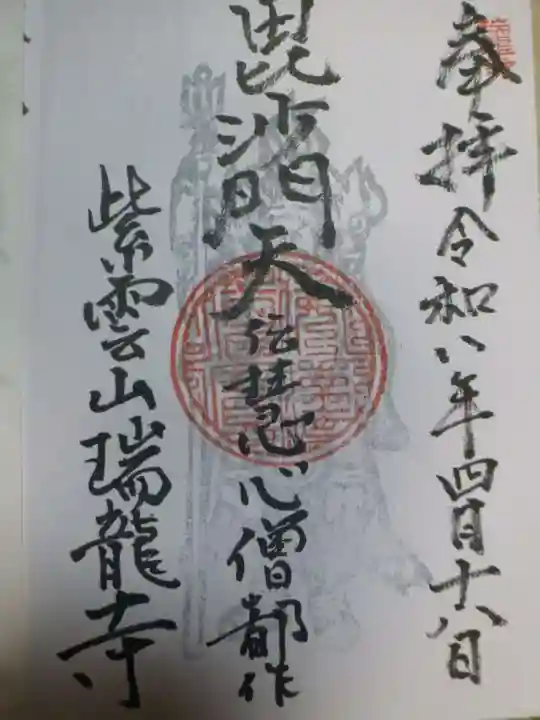 奉拝令和八年四月十八日
毘沙門天伝恵心僧都作
紫雲山瑞龍寺